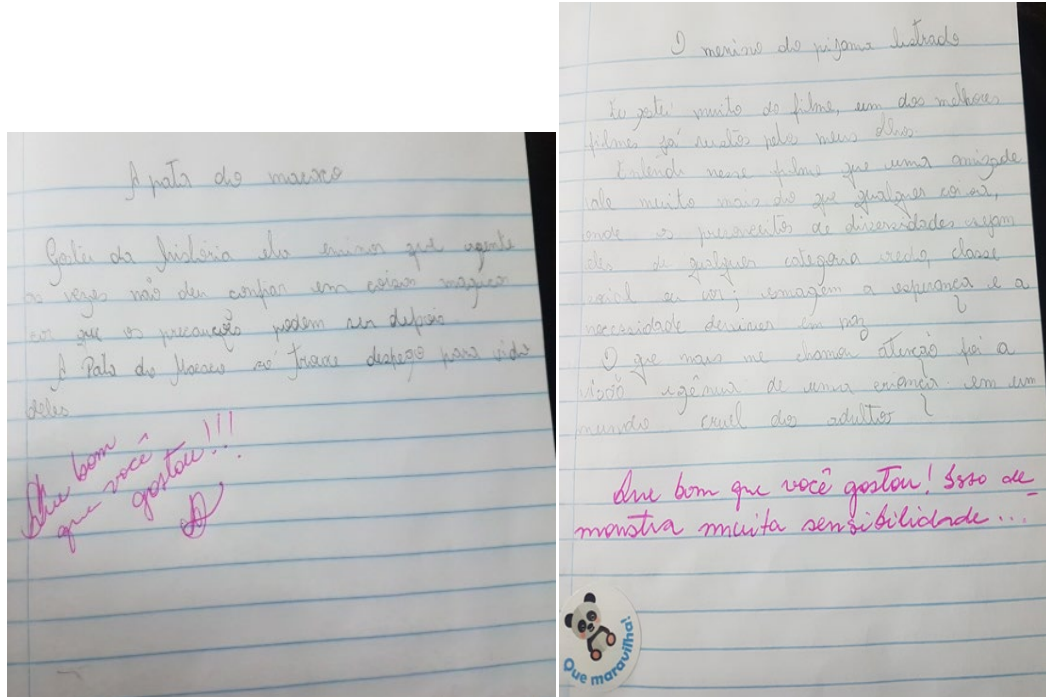 A pata do macaco
Gostei da história ela ensinor que agente
as vezes não deu confiar em coisas magicas
por que os precauções podem ser depois
A Pata do Macaco só traxe despego para vida
deles
Que bom
que você
gostou!!!
O menino do pijama listrado
Eu gostei muito do filme, um dos melhores
filmes já vistos pelos meus olhos.
Entendi nesse filme que uma amizade
vale muito mais do que qualquer coisa,
onde os preconceitos de diversidades sejam
eles de qualquer categoria credo, classe
social ou cor; esmagam a esperança e a
necessidade de viver em paz
O que mais me chamou atenção foi a
visão ingênua de uma criança em um
mundo cruel dos adultos
Que bom que você gostou! Isso de-
monstra muita sensibilidade...
Que maravilha!